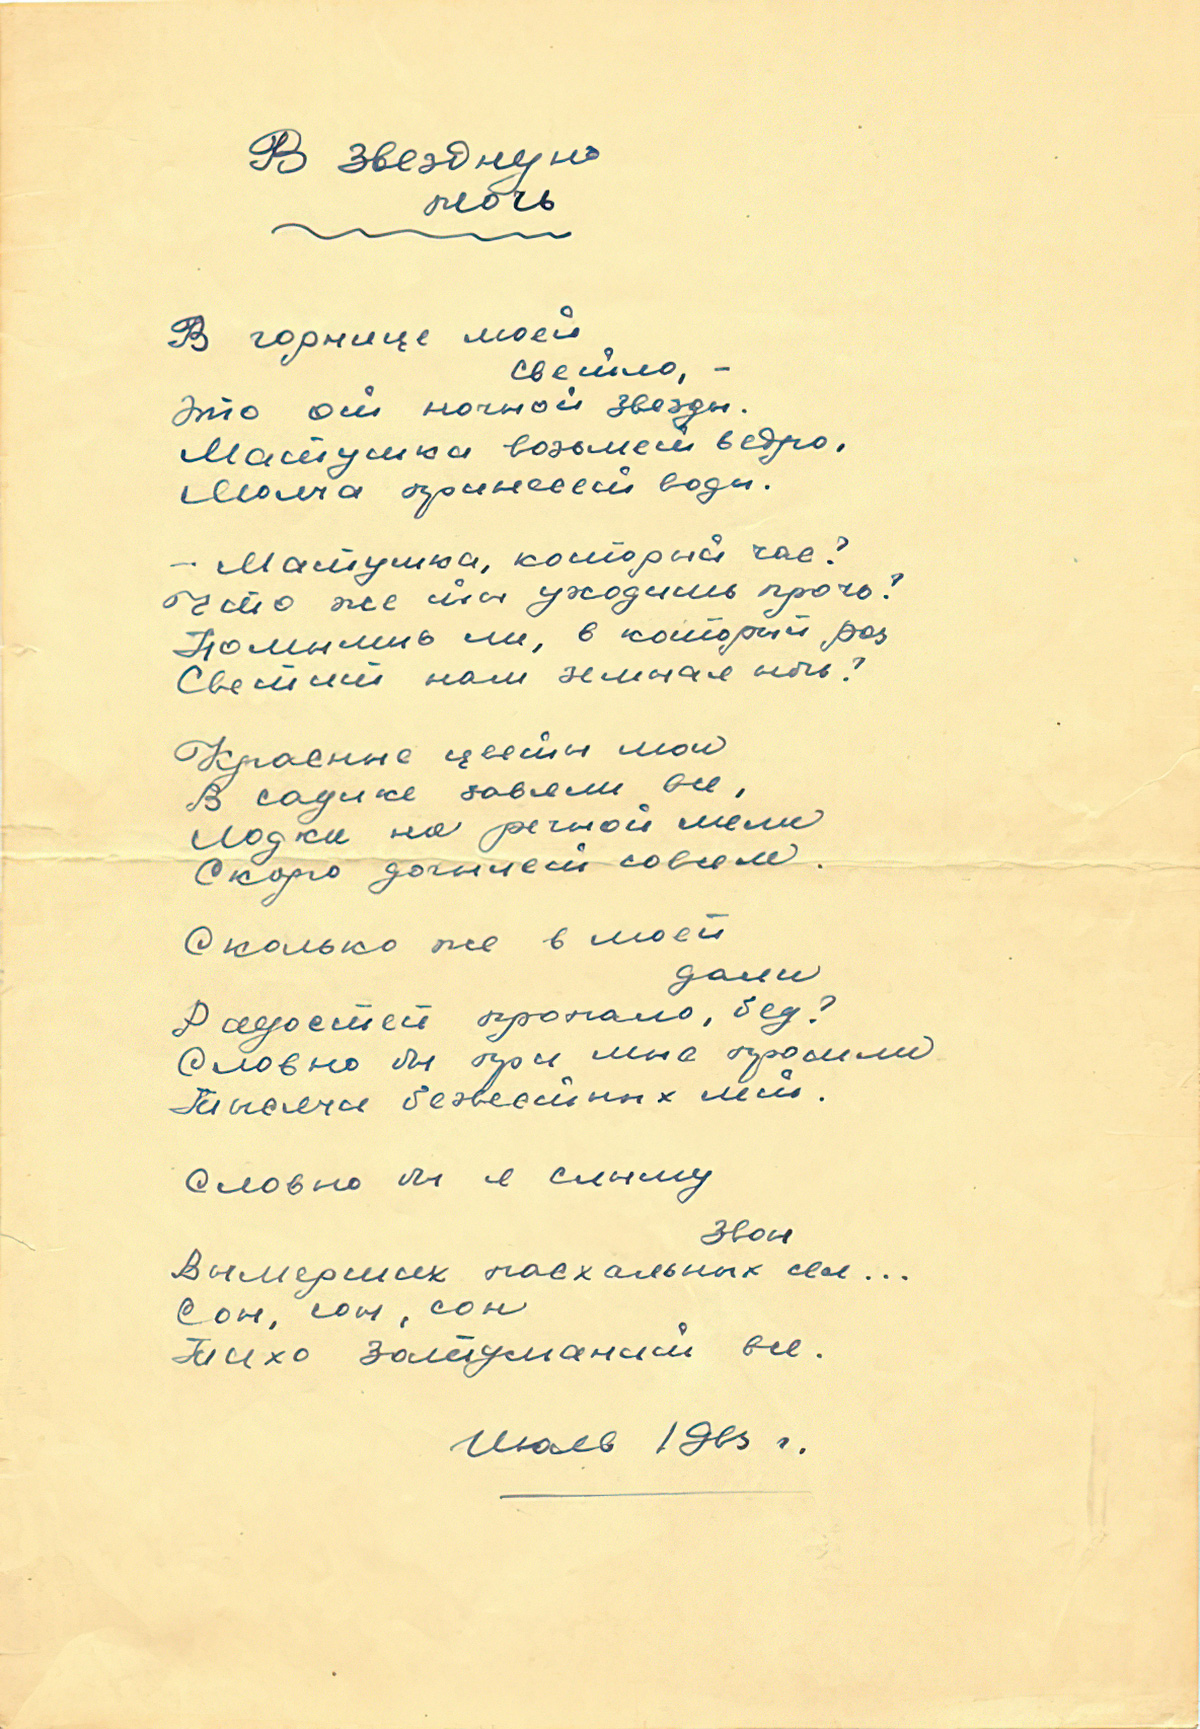 В звездную
ночь
В горнице моей
светло, –
Это от ночной звезды.
Матушка возьмет ведро,
Молча принесет воды.
– Матушка, который час?
Что же ты уходишь прочь?
Помнишь ли, в который раз
Светит нам земная ночь?
Красные цветы мои
В садике завяли все,
Лодка на речной мели
Скоро догниет совсем.
Сколько же в моей
дали
Радостей пропало, бед?
Словно бы при мне прошли
Тысячи безвестных лет.
Словно бы я слышу
звон
Вымерших пасхальных сел...
Сон, сон, сон
Тихо затуманит все.
Июль 1963 г.